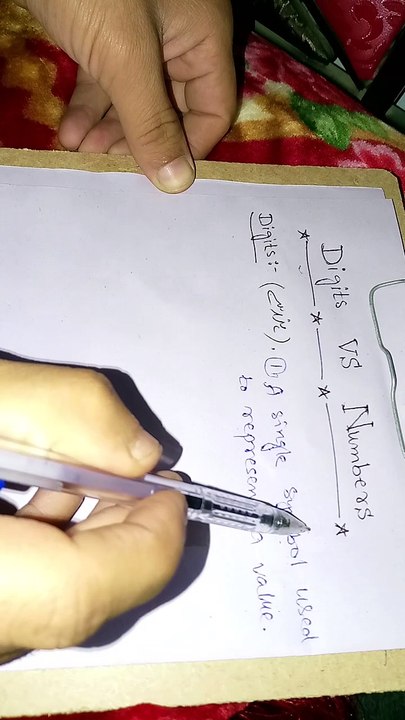 Digits vs Numbers
Digits:- (ہندسے). ① A single symbol used
to represent a value.